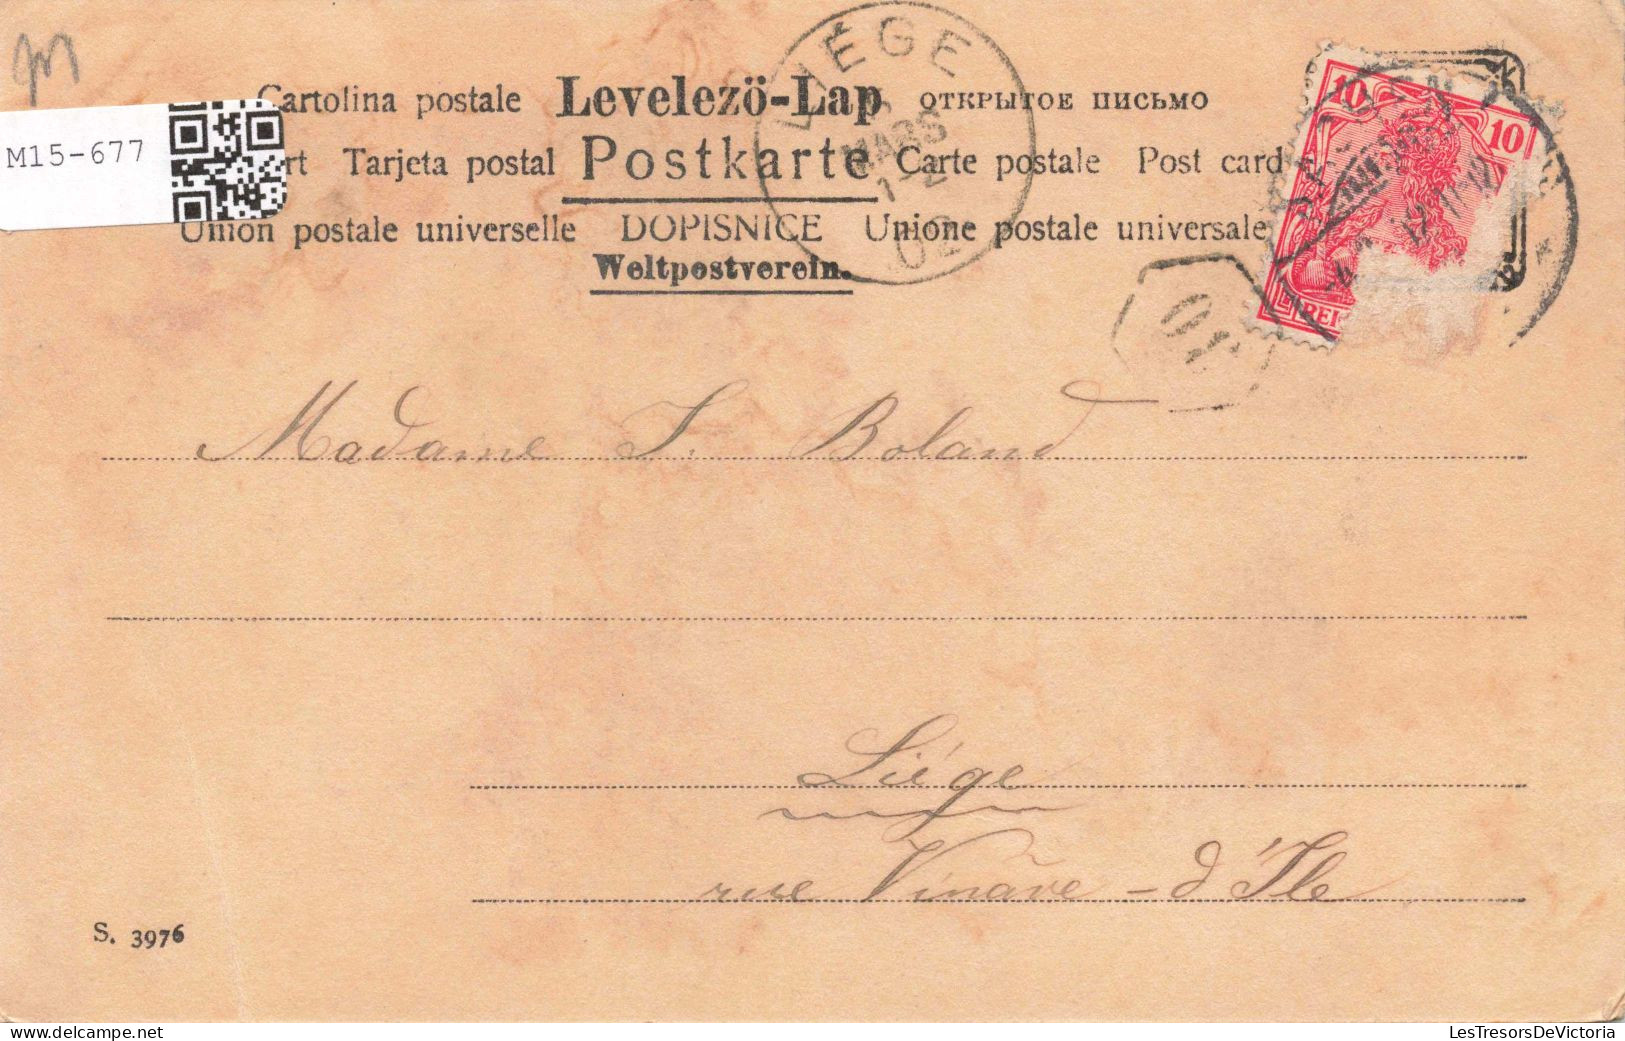 M15-677
Cartolina postale Levelező-Lap открытое письмо
Tarjeta postal Postkarte Carte postale Post card
Union postale universelle DOPISNICE Unione postale universale
Weltpostverein.
LIÉGE
MARS
1-2
02
10 10
REI
Madame J. Boland
Liége
rue Vinâve-d'Ile
S. 3976
LesTresorsDeVictoria